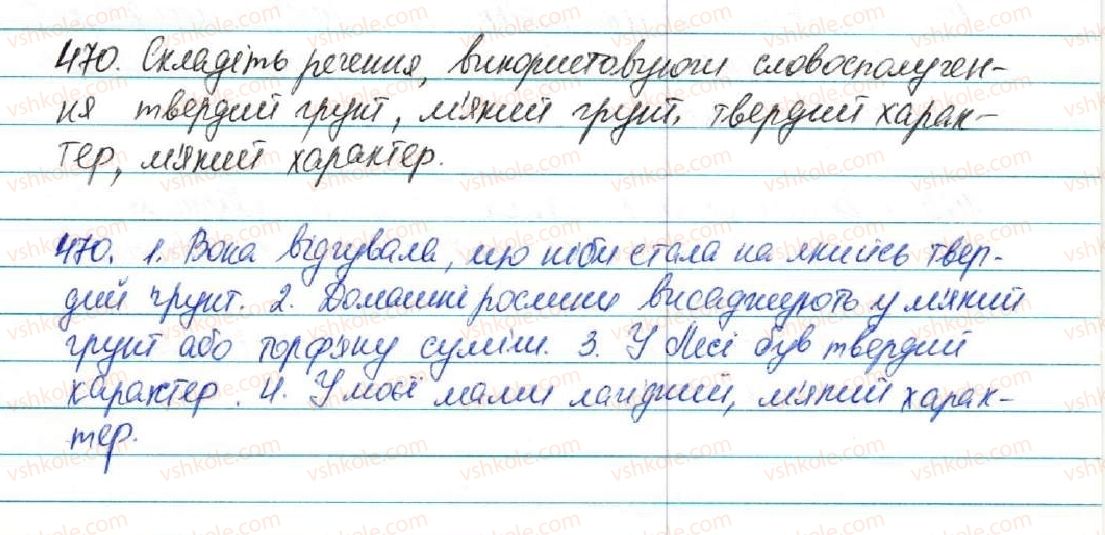 470. Складіть речення, використовуючи словосполучен-
ня твердий грунт, м'який грунт, твердий харак-
тер, м'який характер.
470. 1. Вона відчувала, що ніби стала на якийсь твер-
дий ґрунт. 2. Домашні рослини висаджують у м'який
грунт або торф'яну суміш. 3. У Лесі був твердий
характер. 4. У моєї мами лагідний, м'який харак-
тер.